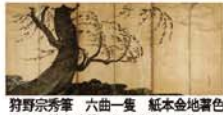 狩野宗秀筆　六曲一隻　紙本金地著色